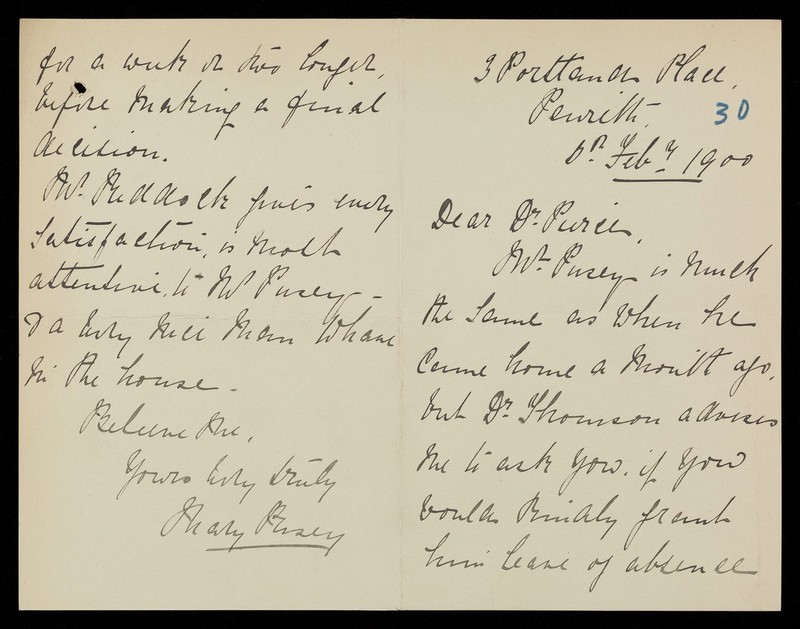 3 Portland Place,
Penrith.
30
Feby 1900
Dear Dr. Pierce,
Mr. Pusey is much
the same as when he
came home a month ago,
but Dr. Thomson advises
me to ask you, if you
would kindly grant
him leave of absence
for a week or two longer,
before making a final
decision.
Mr. Reddock gives every
satisfaction, is most
attentive to Mr Pusey -
& a very nice man to have
in the house.
Believe me,
Yours very truly
Mary Pusey